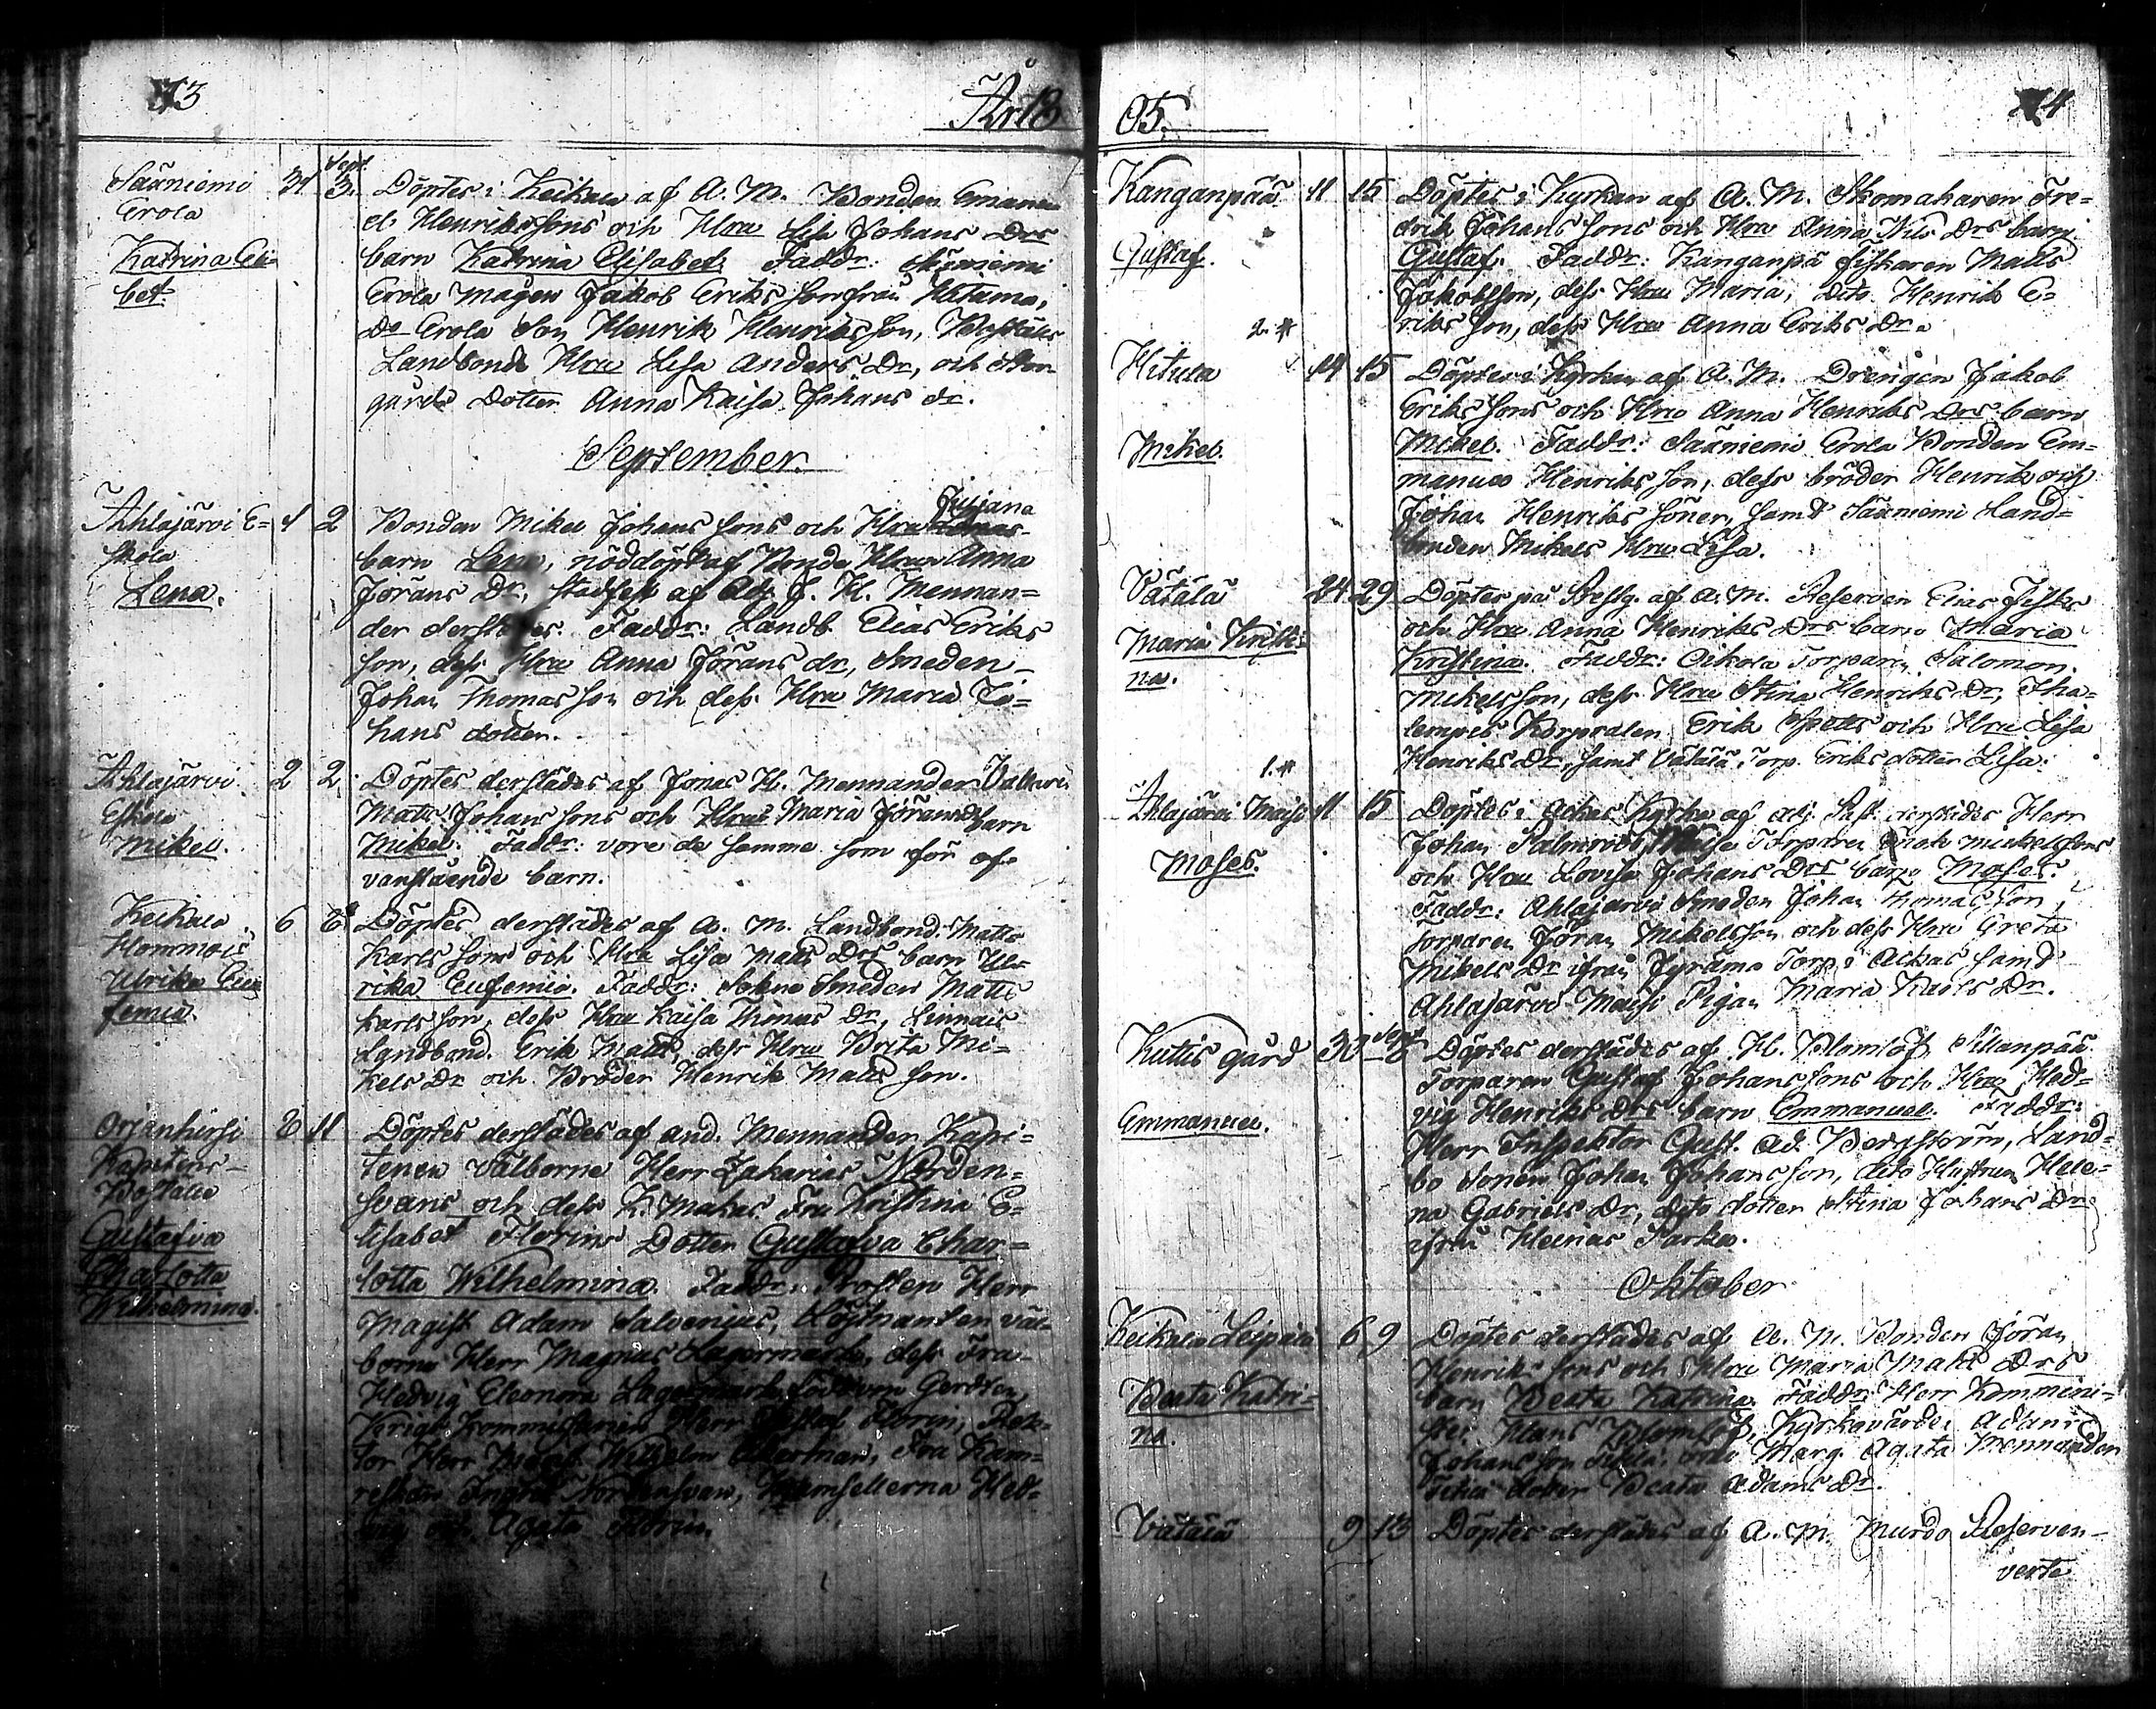 73
År 18
Sääniemi
Erola
Katrina Eli-
bet.
31 Sept. 3.
Döptes i Keikala af A. M. Bonden Emanu
el Henrikssons och Hru Lisa Johans Drs
barn Katrina Elisabet. Faddr: Sääniemi
Erola Mågen Jakob Eriks son från
Do Erola Son Henrik Henriks son,
Landbonde Hru Lisa Anders Dr, och
gårds Dotter Anna Kaisa Johans dr.
September.
Ahlajärvi E-
skola
Lena.
1 2
Juliana
Bonden Mikel Johans sons och Hru
barn Lena, nöddöpt af Bonde Hrun Anna
Jörans Dr, stadfest af Adj. J. H. Mennan-
der derstädes. Faddr: Landb. Elias Eriks
son, dess Hru Anna Jörans dr, Smeden
Johan Thomas son och dess Hru Maria Jo-
hans dotter.
Ahlajärvi
Eskola
Mikel.
2 2
Döptes derstädes af Jonas H. Mennander
Matts Johans sons och Hrus Maria Jörans Drs barn
Mikel. Faddr: vore de samme som för of-
vanstående barn.
Keikala
Hommois
Ulrika Eu-
femia.
6 8
Döptes derstädes af A. M. Landbond. Matts
Karls sons och Hru Lisa Matts Drs barn Ul-
rika Eufemia. Faddr: Sokne Smeden Matts
Karls son, dess Hru Kaisa Thomas Dr, Linnais
Landbond. Erik Matts, dess Hru Brita Mi-
kels Dr och Broder Henrik Matts son.
Orjanhirsi
Kapitens-
Boställe
Gustafva
Charlotta
Wilhelmina.
8 11
Döptes derstädes af And. Mennander Kapi-
tenen Välborne Herr Zakarias Norden-
svans och dess K. Makas Fru Kristina E-
lisabet Florins Dotter Gustafva Char-
lotta Wilhelmina. Faddr: Prosten Herr
Magist. Adam Salvenius, Löjtnanten väl-
borne Herr Magnus Lagermark, dess Fru
Hedvig Eleonora Lagermark Gerdten,
Krigs Kommissarien Herr Gustaf Florin, Rek-
tor Herr Wilhelm, Fru Kam-
Nordensvan, Mamsellerna Hed-
vig och Agata Florin.
05.
74
Kanganpää
Gustaf.
11 15
Döptes i Kyrkan af A. M. Skomakaren Fre-
drik Johans sons och Hru Anna Nils Drs barn
Gustaf. Faddr: Kanganpä Fiskaren Matts
Jakobsson, dess Hru Maria, Dito Henrik E-
riks son, dess Hru Anna Eriks Dr.
2. #
Hitura
Mikel.
14 15
Döptes i Kyrkan af A. M. Drengen Jakob
Eriks sons och Hru Anna Henriks Drs barn
Mikel. Faddr: Sääniemi Erola Bonden Em-
manuel Henriks son, dess bröder Henrik och
Johan Henriks söner, samt Sääniemi Land-
bonden Mikels Hru Lisa.
Vätälä
Maria Kristi-
na.
24 29
Döptes på Prestg. af A. M. Reserven Elias Fisks
och Hru Anna Henriks Drs barn Maria
Kristina. Faddr: Oikola Torparen Salomon
Mikelsson, dess Hru Stina Henriks Dr,
Korpralen Erik Spetts och Hru Lisa
Henriks Dr, samt Vätälä Torp. Eriks dotter Lisa.
1. #
Ahlajärvi Maisi
Moses.
11 15
Döptes i Ackas Kyrka af adj. Past. derstädes Herr
Johan Palmroos, Maisi Torparen Mickelssons
och Hru Lovisa Johans Drs barn Moses.
Faddr: Ahlajärvi Smeden Johan Thomas son,
Torparen Jöran Mikelsson och dess Hru Greta
Mikels Dr ifrån Torp i Ackas samt
Ahlajärvi Maisi Pigan Maria Karls Dr.
Kutis gård
Emmanuel.
30
Döptes derstädes af H. Blomlöf
Torparen Gustaf Johans sons och Hru Hed-
vig Henriks Drs barn Emmanuel. Faddr:
Herr Inspektor Gust. Ad. Bergström, Land-
bo Sonen Johan Johansson, dito Hustrun Hele-
na Gabriels Dr, dito dotter Stina Johans Dr
ifrån Heinäs Parka.
Oktober
Keikala
Beata Katri-
na.
6 9
Döptes derstädes af A. M. Bonden Jöran
Henriks sons och Hru Maria Matts Drs
barn Beata Katrina. Faddr: Herr Kommini-
ster Hans Blomlöf, Kyrkovärden Adam
Johans son, Marg. Agata Mennander
dotter Beata Adams Dr.
Vätälä
9 13
Döptes derstädes af A. M. Murdo Reserven
verte